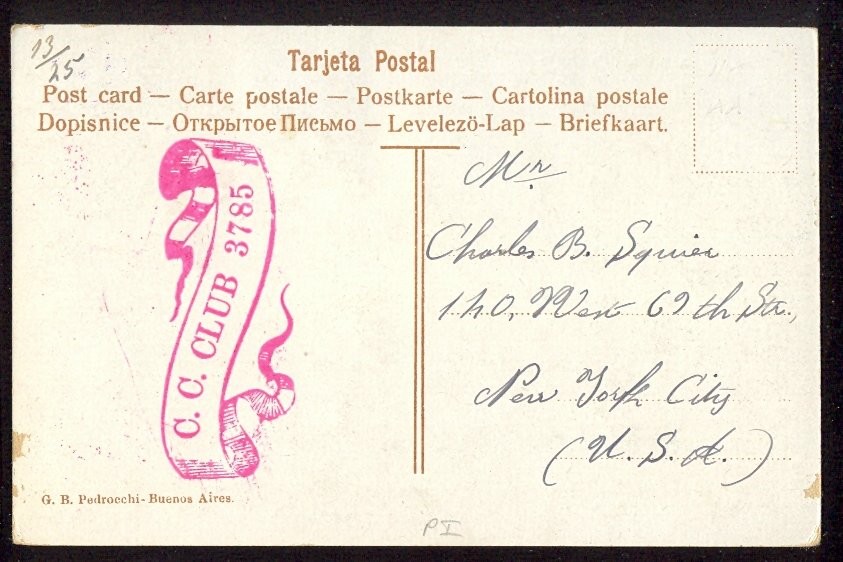 13/25
Tarjeta Postal
Post card — Carte postale — Postkarte — Cartolina postale
Dopisnice — Открытое Письмо — Levelezö-Lap — Briefkaart.
C. C. CLUB 3785
Mr
Charles B. Squier
140, West 69th Str.,
New York City
(U. S. A.)
G. B. Pedrocchi - Buenos Aires.
PI